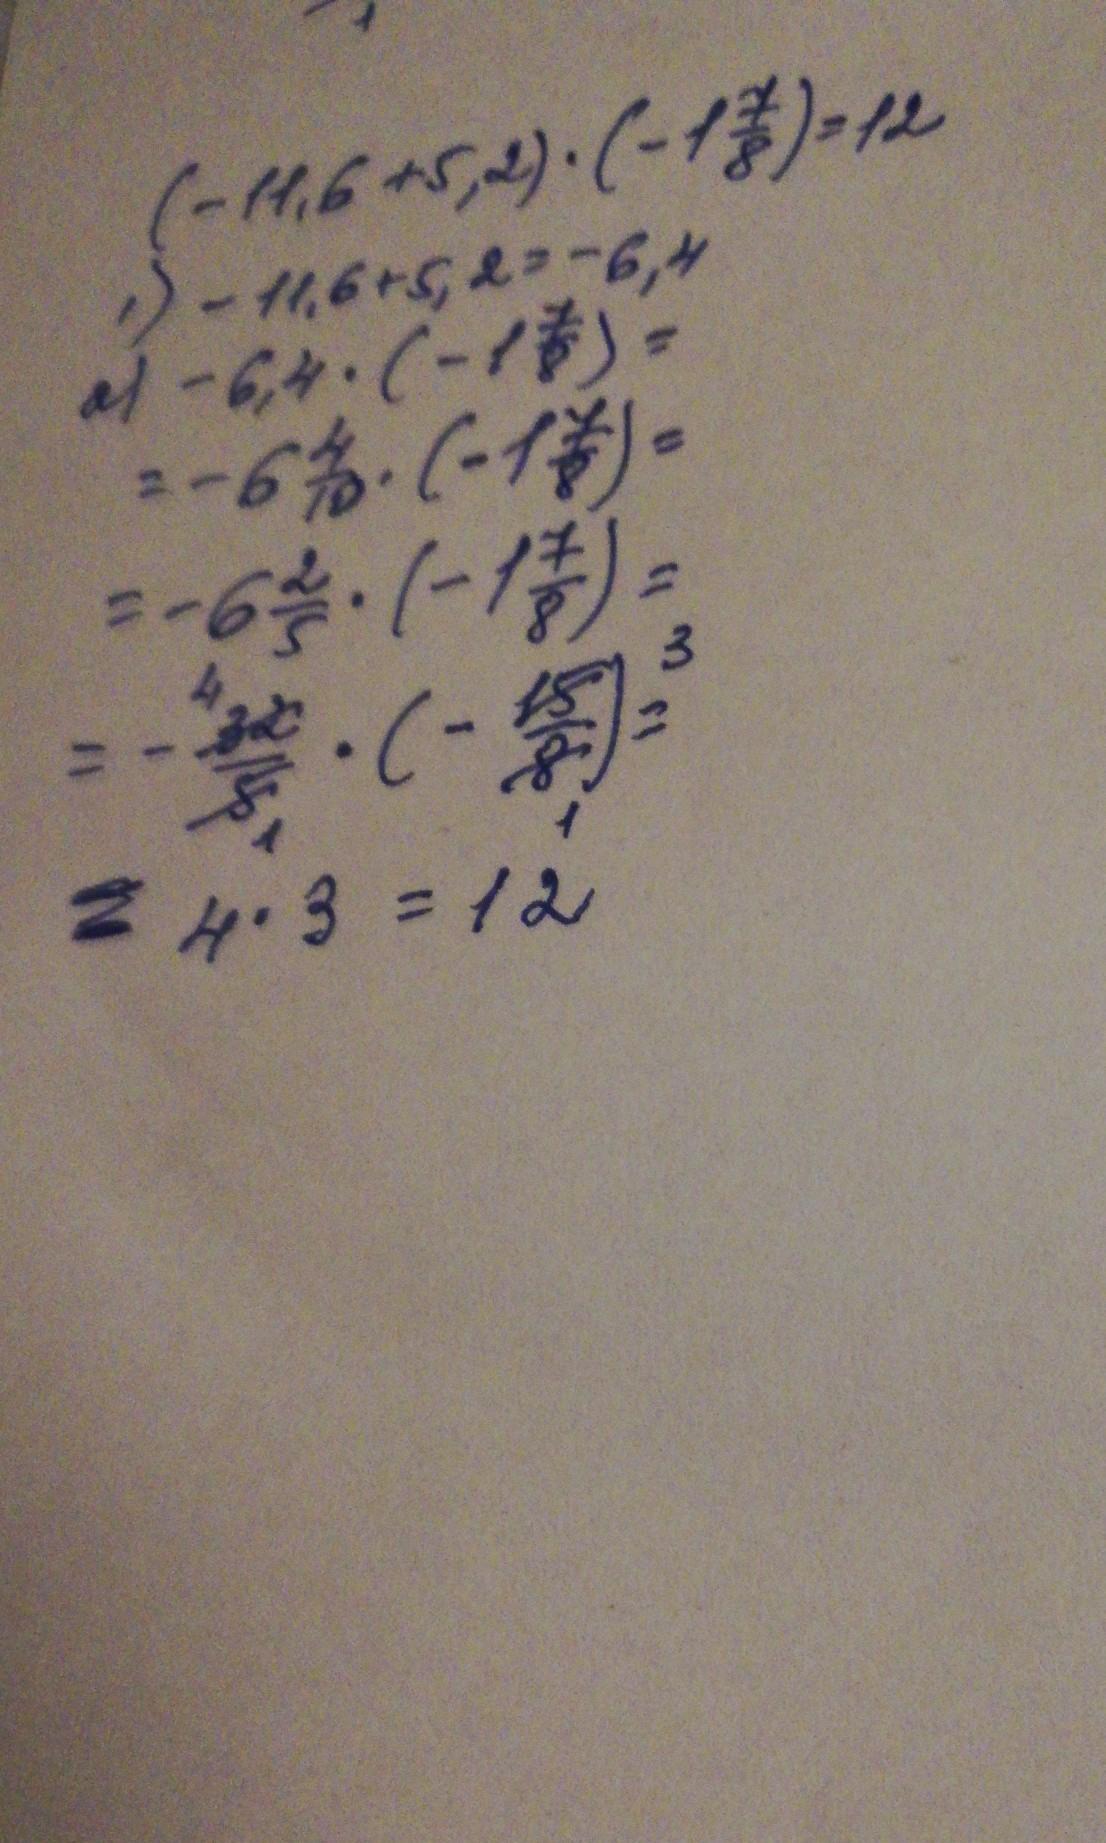 (-11,6+5,2)·(-1 7/8)=12
1) -11,6+5,2=-6,4
2) -6,4·(-1 7/8)=
=-6 4/10·(-1 7/8)=
=-6 2/5·(-1 7/8)=
3
4
=-32/5·(-15/8)=
1 1
= 4·3=12